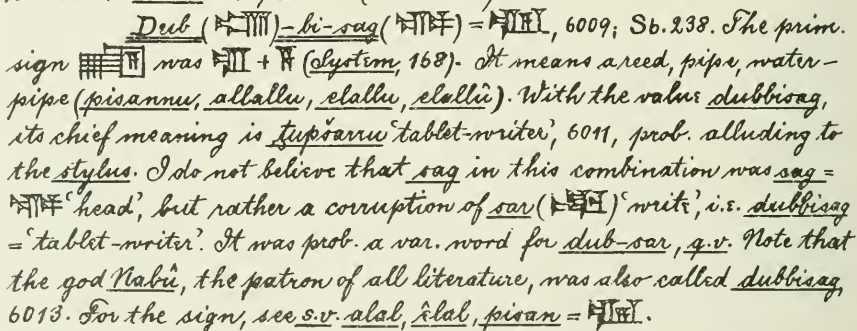 Dub ()-bi-sag () = , 6009; Sb. 238. The prim.
sign was + (System, 168). It means a reed, pipe, water-
pipe (pisannu, allallu, elallu, elallû). With the value dubbisag,
its chief meaning is ṭupšarru ‘tablet-writer’, 6011, prob. alluding to
the stylus. I do not believe that sag in this combination was sag =
‘head’, but rather a corruption of sar () ‘write’, i.e. dubbisag
= ‘tablet-writer’. It was prob. a var. word for dub-sar, q.v. Note that
the god Nabû, the patron of all literature, was also called dubbisag,
6013. For the sign, see s.v. alal, êlal, pisan = .